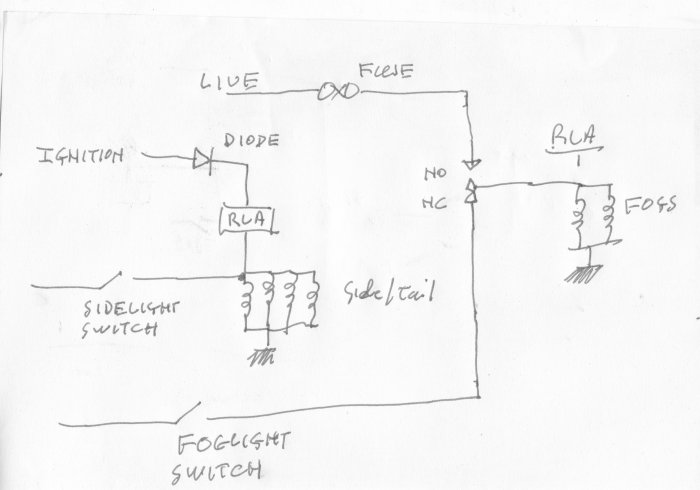 LIVE
FUSE
DIODE
IGNITION
RLA
1
NO
NC
RLA
FOGS
SIDELIGHT
SWITCH
Side/tail
FOGLIGHT
SWITCH